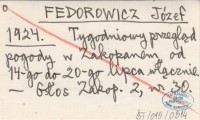 FEDOROWICZ Józef
1924. Tygodniowy przegląd
pogody w Zakopanem od
14-go do 20-go lipca włącznie
— Głos Zakop. 2, nr 30.